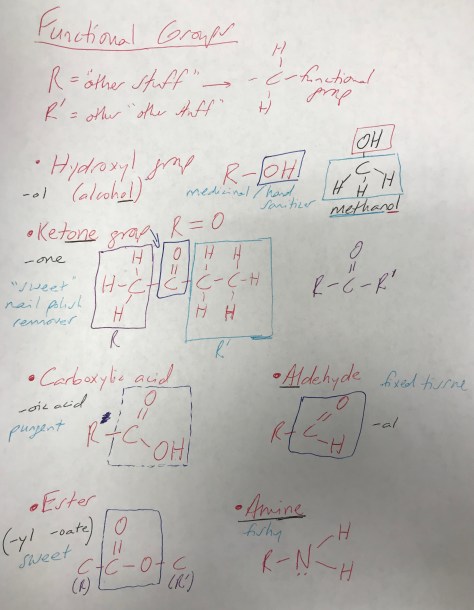 Functional Groups
R = "other stuff" → - C - functional group
H
H
R' = other "other stuff"
• Hydroxyl group
-ol (alcohol)
R - OH
medicinal/hand sanitizer
OH
C
H H H
methanol
• Ketone group R = O
-one
"sweet"
nail polish
remover
H O H H
H - C - C - C - C - H
H H H
R R'
O
R - C - R'
• Carboxylic acid
-oic acid
pungent
O
R - C
OH
• Aldehyde fixed tissue
O
R - C -al
H
• Ester
(-yl -oate)
sweet
O
C - C - O - C
(R) (R')
• Amine
fishy
H
R - N
H